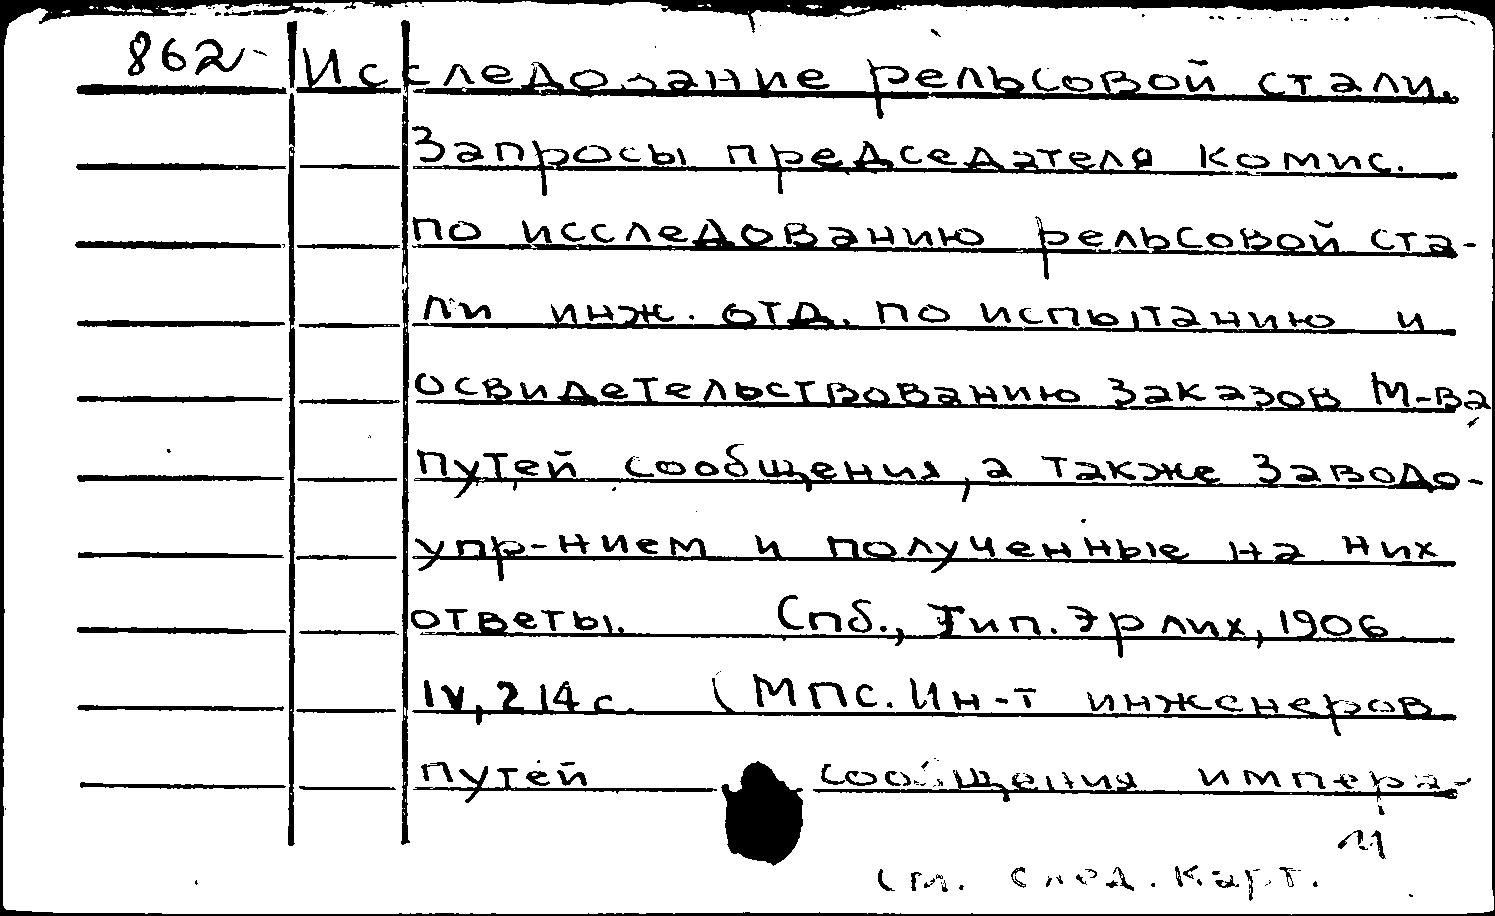 862 Исследование рельсовой стали.
Запросы председателя комис.
по исследованию рельсовой ста-
ли инж. отд. по испытанию и
освидетельствованию заказов М-ва
путей сообщения, а также заводо-
упр-нием и полученные на них
ответы. Спб., тип. Эрлих, 1906
IV, 214 с. (МПС. Ин-т инженеров
путей сообщения импера-
см. след. карт.